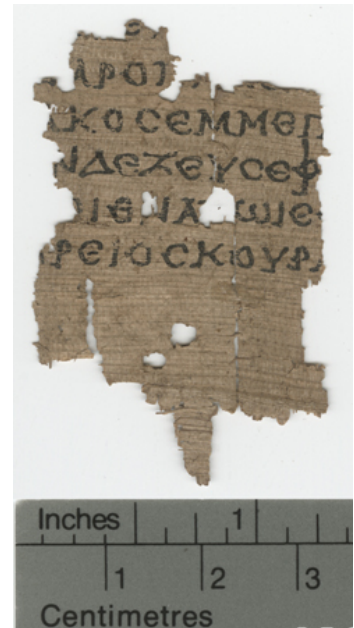 ΑΡΟΤ
ΚΟϹΕΜΜΕ
ΝΔΕΖΕΥϹΕΦ
ΙΕΝΑ ΩΙΕ
ΡΕΙΟϹΚΟΥΡ
Inches 1
1 2 3
Centimetres